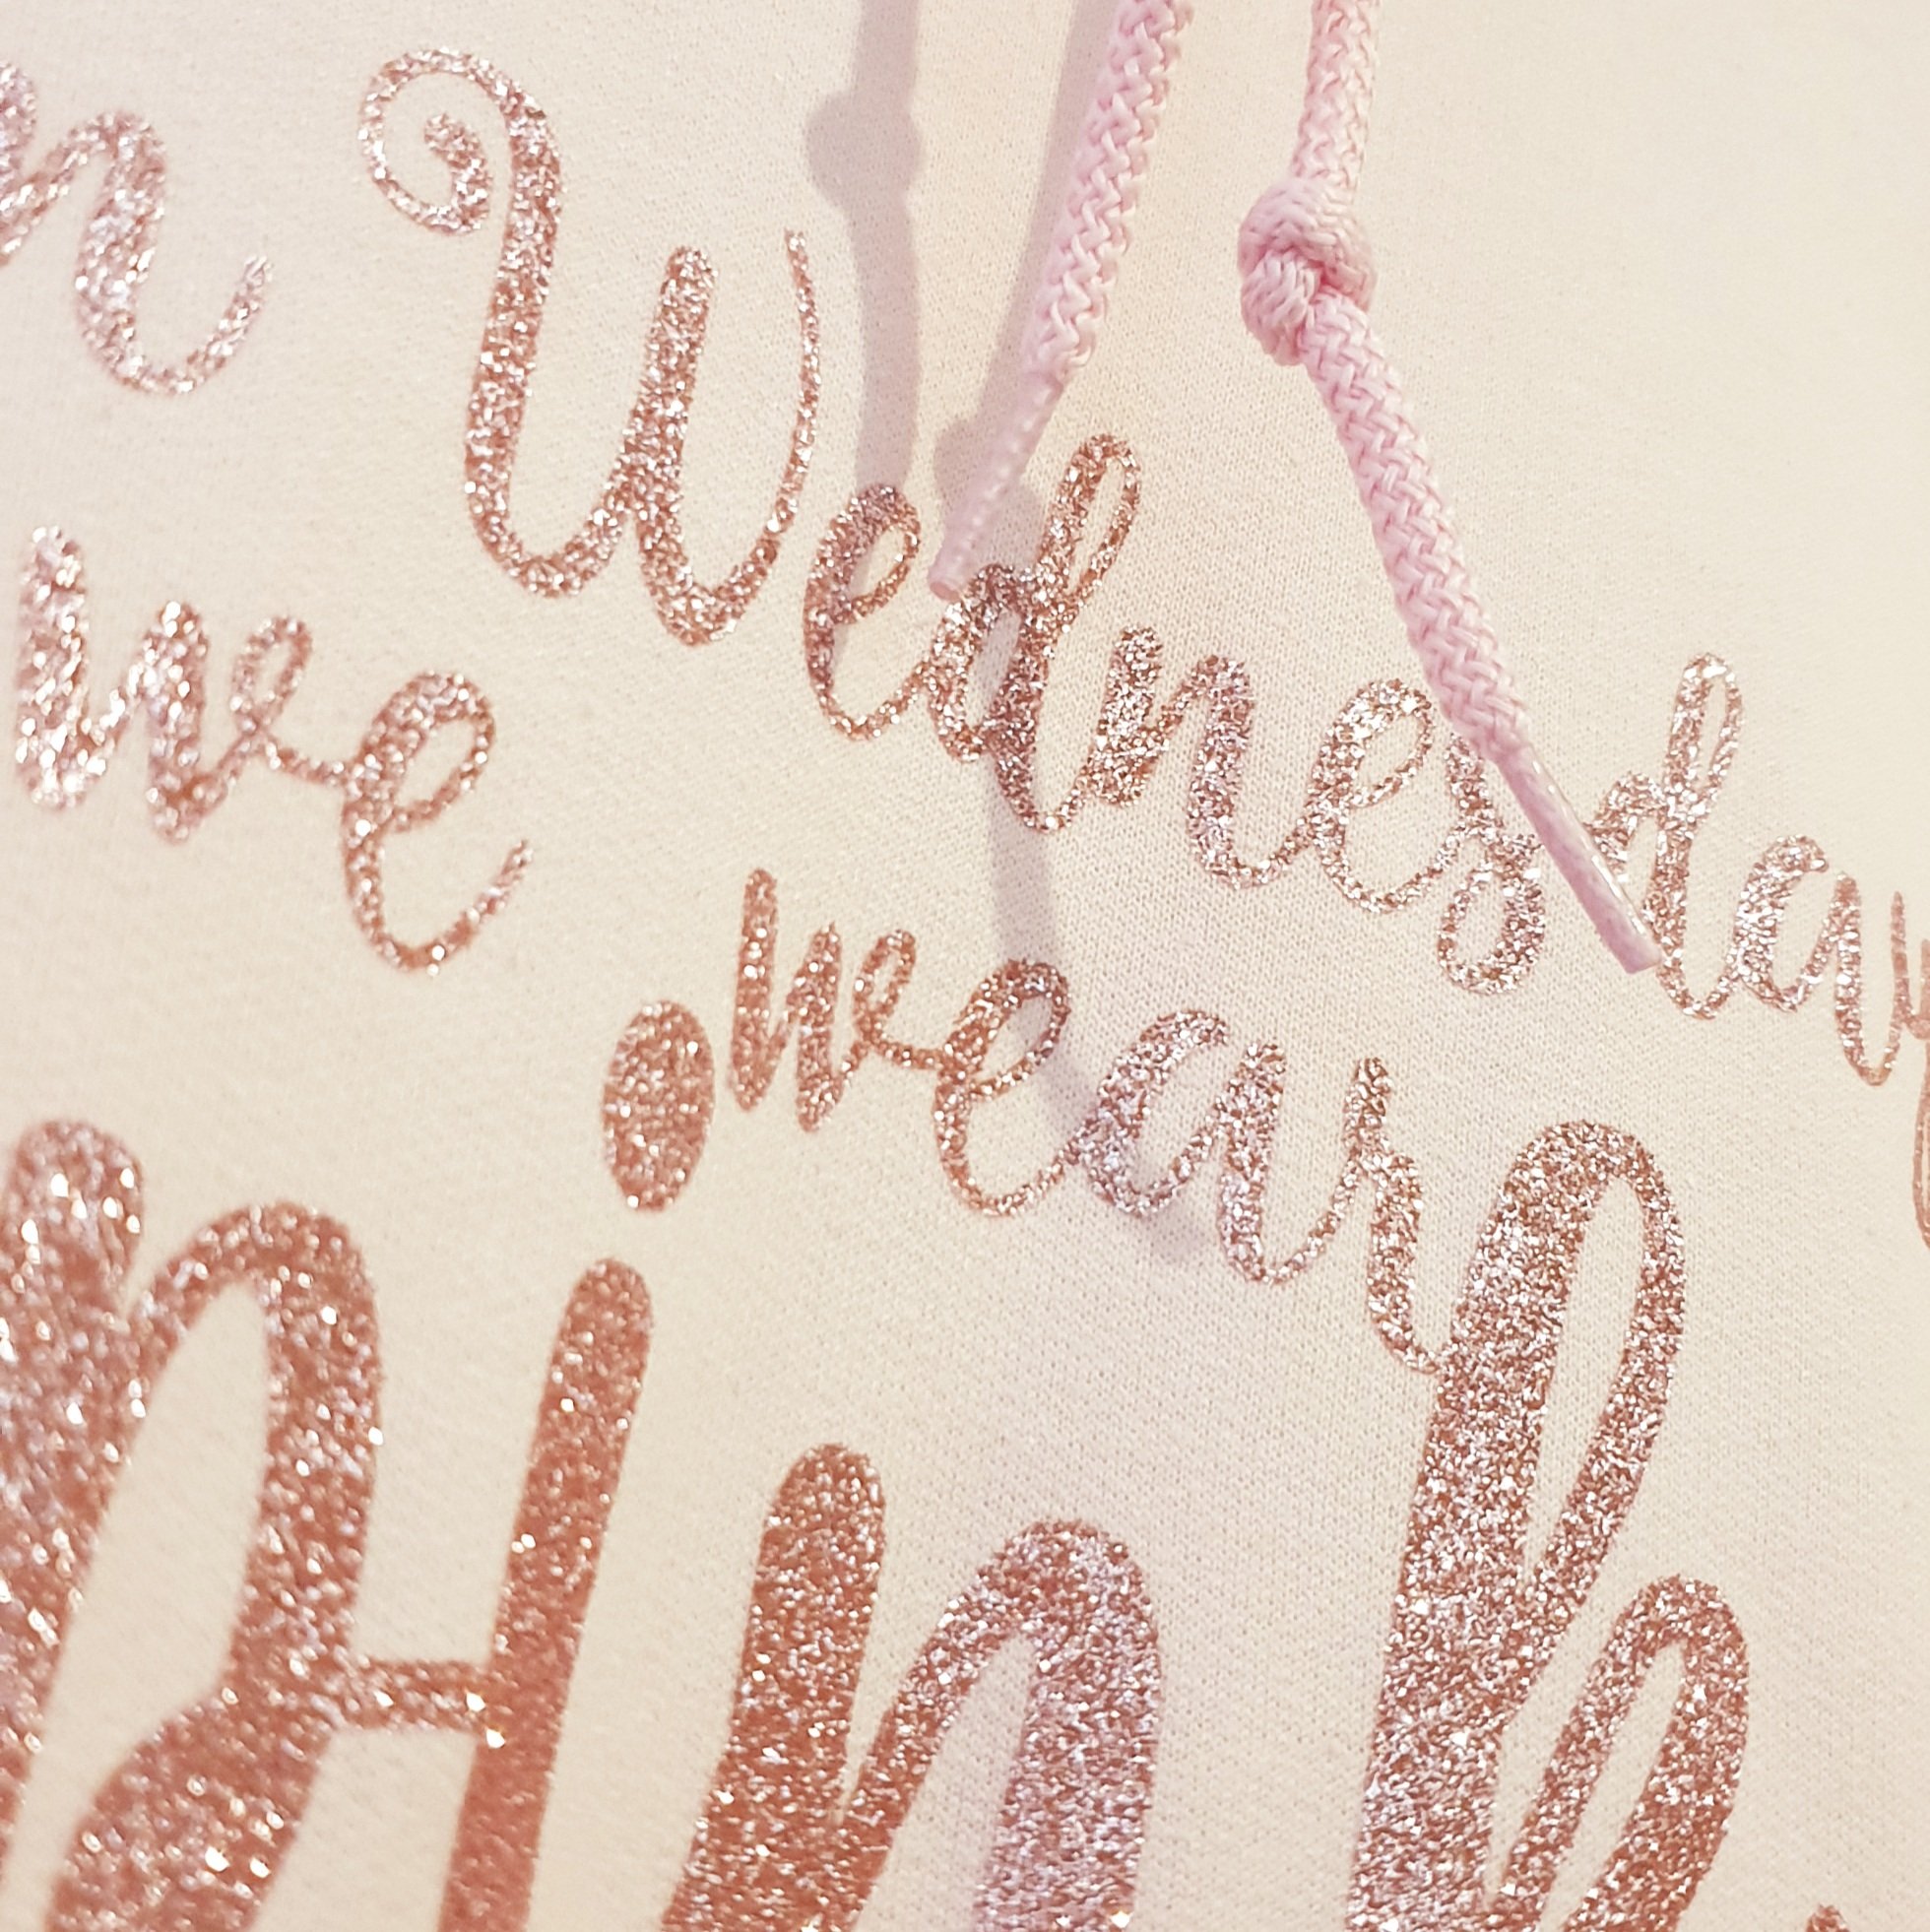 n Wednesday
we wear
Pink